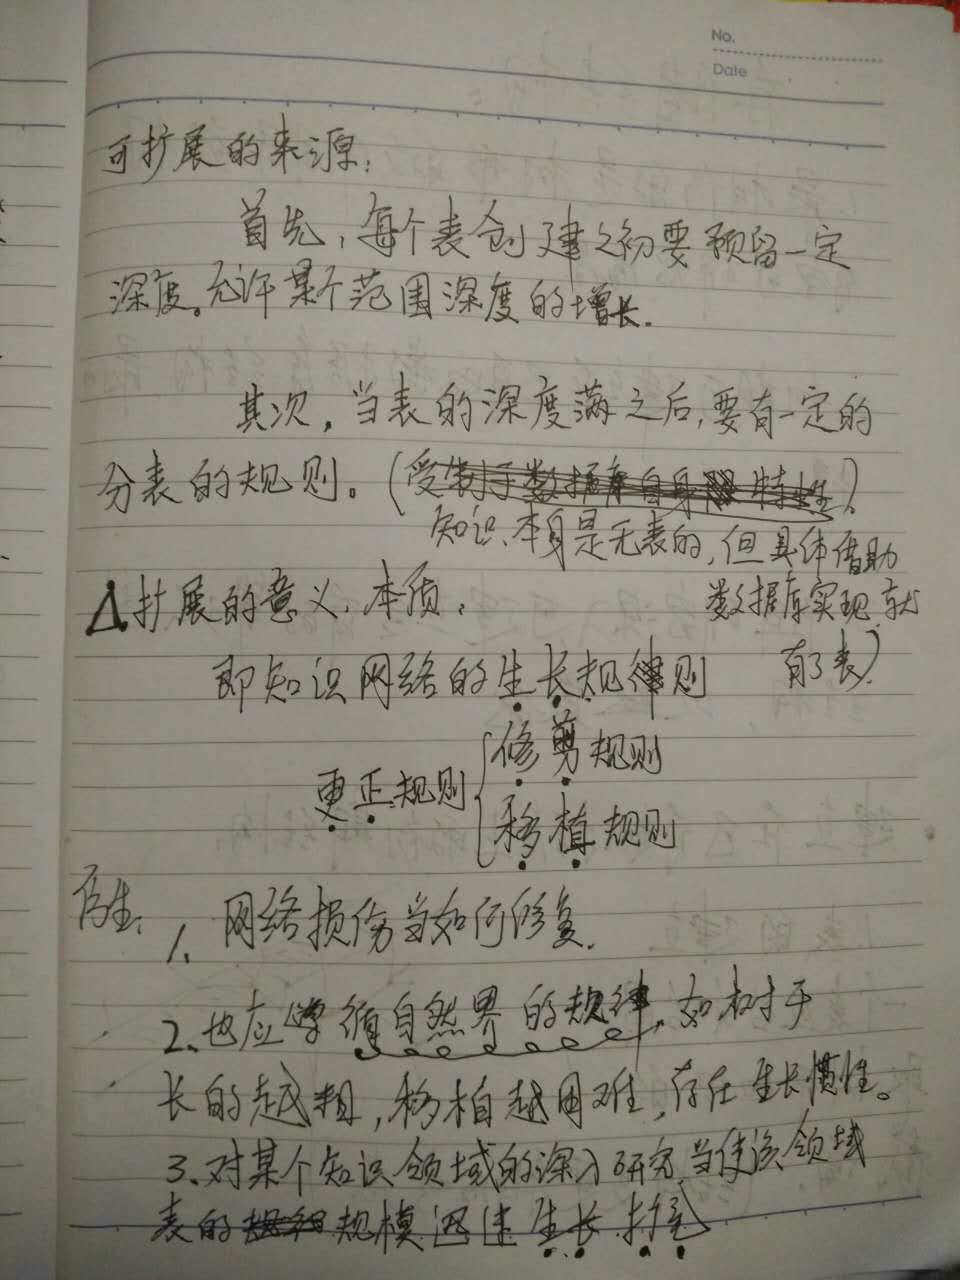 No.
Date
可扩展的来源:
首先,每个表创建之初要预留一定
深度。允许某个范围深度的增长.
其次,当表的深度满之后,要有一定的
分表的规则。(受制于数据库自身 特性)
知识本身是无表的,但具体借助
数据库实现就
有了表)
△扩展的意义、本质,
即知识网络的生长规律则
更正规则
修剪规则
移植规则
1、网络损伤当如何修复.
2、也应遵循自然界的规律,如,树干
长的越粗,移植越困难,存在生长惯性。
3、对某个知识领域的深入研究当使该领域
表的 规模迅速生长